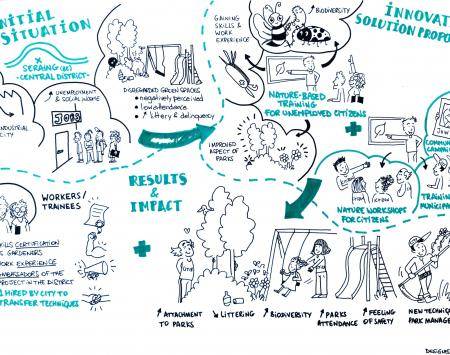 INITIAL
SITUATION
SERAING (BE)
- CENTRAL DISTRICT -
INDUSTRIAL
CITY
↗ UNEMPLOYMENT
& SOCIAL INCOME
JOBS
DISREGARDED GREEN SPACES
• negatively perceived
• low attendance
• ↗ littery & delinquency
GAINING
SKILLS &
WORK
EXPERIENCE
↗ BIODIVERSITY
INNOVAT
SOLUTION PROPO
NATURE-BASED
TRAINING
FOR UNEMPLOYED CITIZENS
IMPROVED
ASPECT OF
PARKS
COMMUN
CAMPAIG
TRAINING
MUNICIPA
NATURE WORKSHOPS
FOR CITIZENS
RESULTS
& IMPACT
WORKERS/
TRAINEES
KILLS CERTIFICATION
S GARDENERS
ORK EXPERIENCE
AMBASSADORS OF THE
PROJECT IN THE DISTRICT
HIRED BY CITY TO
TRANSFER TECHNIQUES
↗ ATTACHMENT
TO PARKS
↘ LITTERING
↗ BIODIVERSITY
↗ PARKS
ATTENDANCE
↗ FEELING
OF SAFETY
NEW TECHNIQ
PARK MANAGE